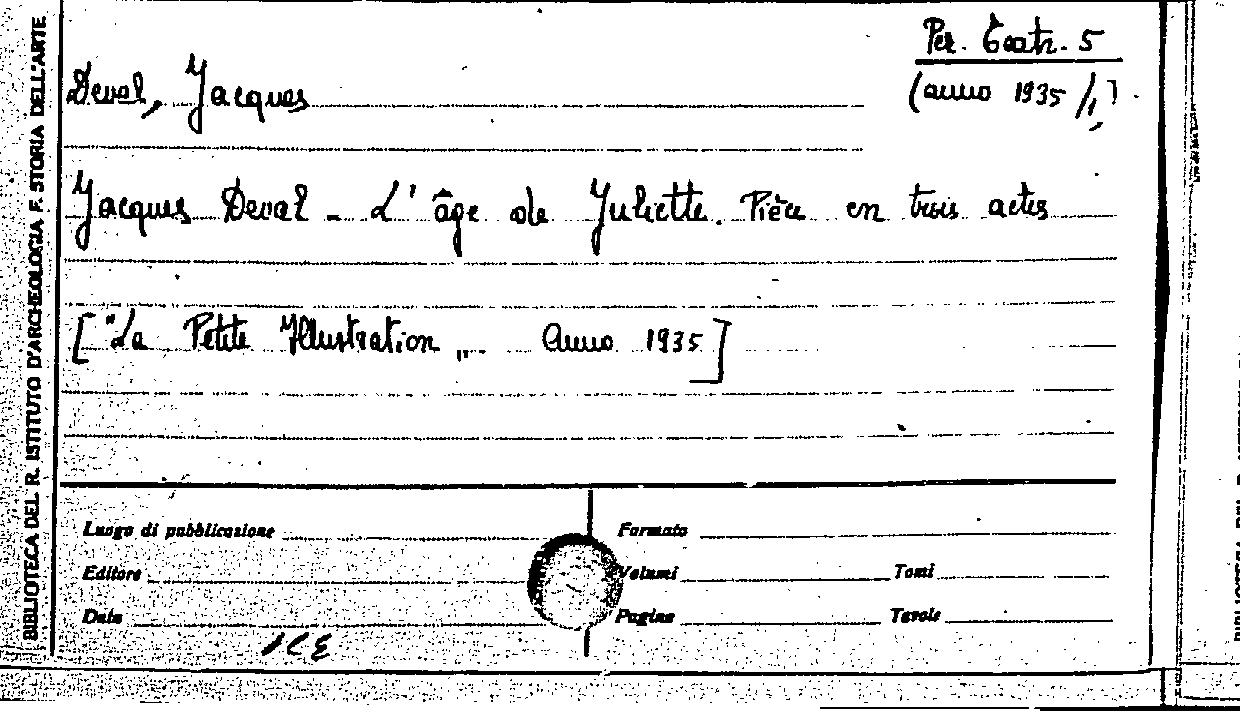 Per. Teatr. 5
Deval, Jacques
(anno 1935/1,)
Jacques Deval - L'âge de Juliette. Pièce en trois actes
["La Petite Illustration„. Anno 1935]
Luogo di pubblicazione
Formato
Editore
Volumi
Tomi
Data
Pagine
Tavole
ICE
BIBLIOTECA DEL R. ISTITUTO D'ARCHEOLOGIA F. STORIA DELL'ARTE